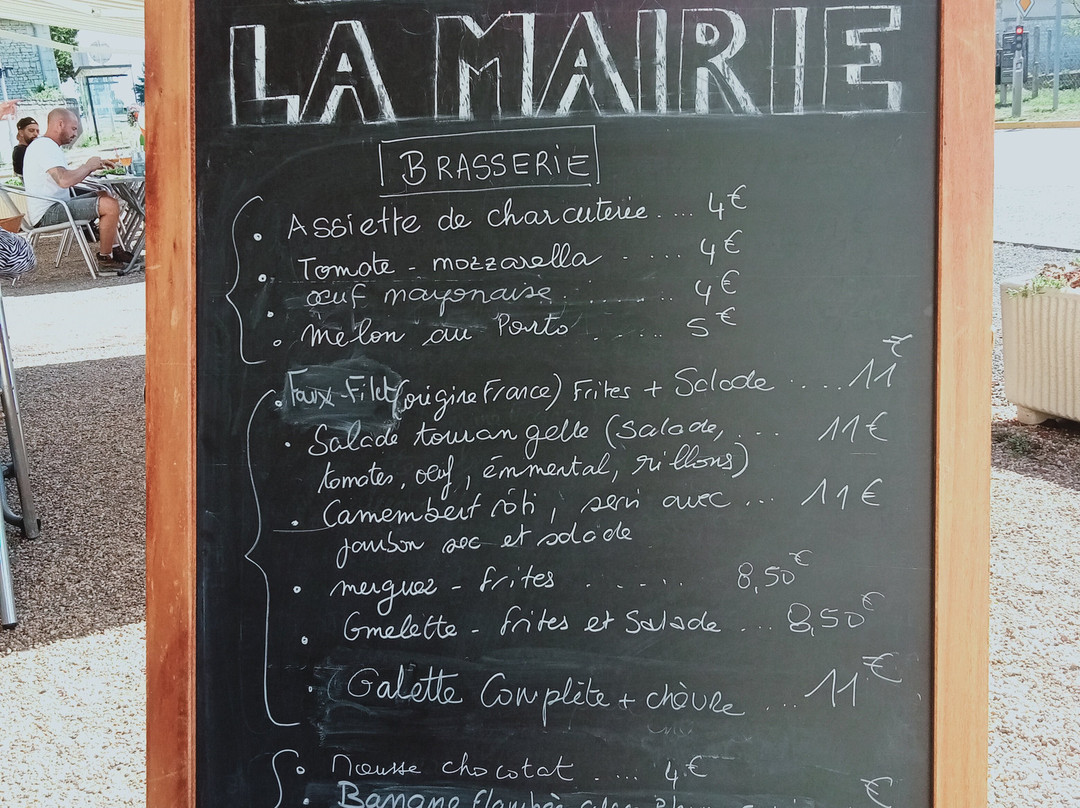 LA MAIRIE
BRASSERIE
• Assiette de charcuterie.... 4€
• Tomate - mozzarella ..... 4€
• œuf mayonaise ....... 4€
• Melon au Porto ...... 5€
• Faux-Filet (origine France) Frites + Salade .....11€
• Salade tourangelle (salade, ... 11€
tomates, œuf, émmental, rillons)
• Camembert rôti, servi avec ... 11€
jambon sec et salade
• merguez - frites ...... 8,50€
• Omelette - frites et Salade ... 8,50€
• Galette Complète + chèvre ... 11€
• Mousse chocolat ..... 4€
• Banane flambée €